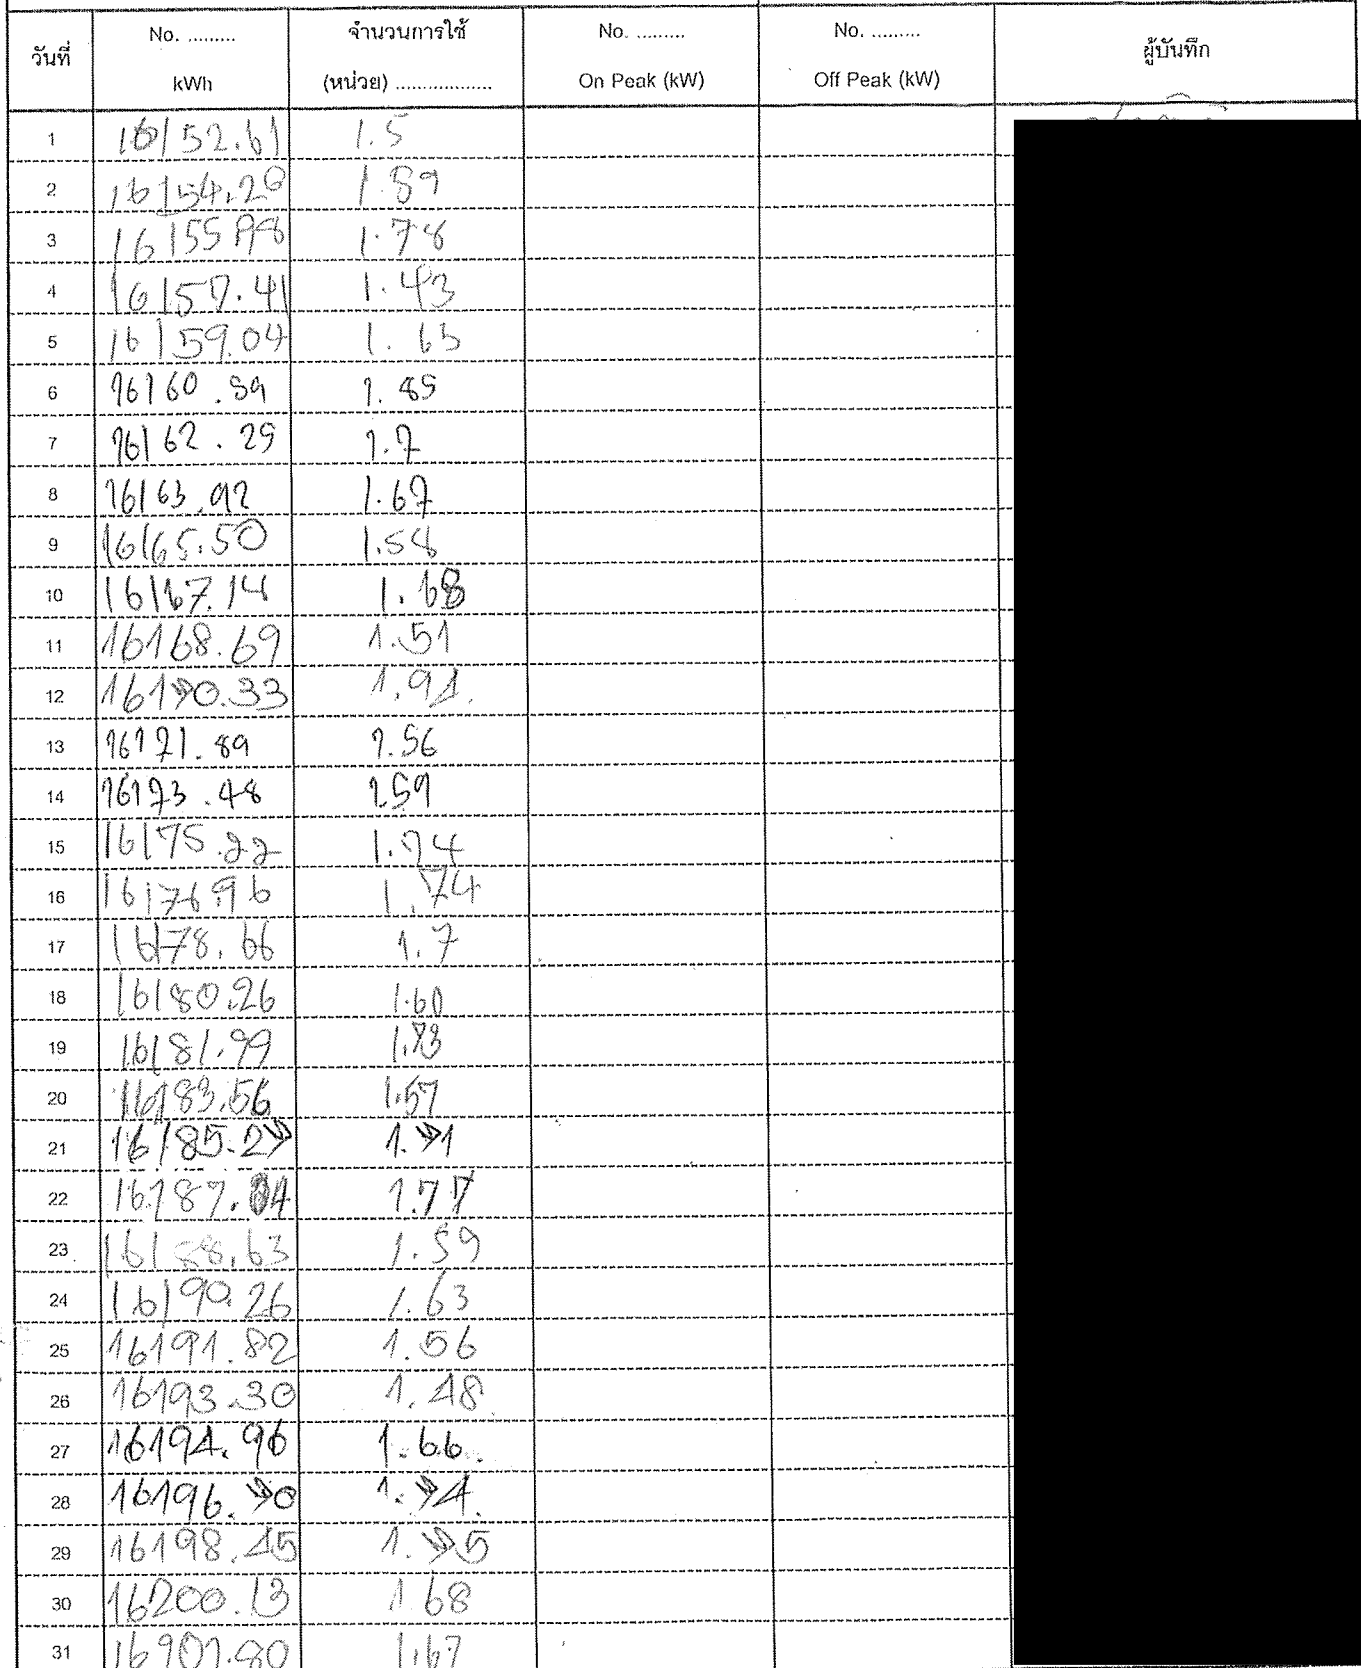 วันที่ No. ......... kWh จำนวนการใช้ (หน่วย) .................. No. ......... On Peak (kW) No. ......... Off Peak (kW) ผู้บันทึก
1 16152.61 1.5
2 16154.20 1.89
3 16155.98 1.78
4 16157.41 1.43
5 16159.04 1.63
6 16160.89 1.85
7 16162.25 1.7
8 16163.92 1.67
9 16165.50 1.58
10 16167.14 1.68
11 16168.69 1.51
12 16170.33 1.94.
13 16171.89 1.56
14 16173.48 1.59
15 16175.22 1.74
16 16176.96 1.74
17 16178.66 1.7
18 16180.26 1.60
19 16181.99 1.73
20 16183.56 1.57
21 16185.27 1.71
22 16187.04 1.77
23 16188.63 1.59
24 16190.26 1.63
25 16191.82 1.56
26 16193.30 1.48
27 16194.96 1.66.
28 16196.70 1.74.
29 16198.45 1.75
30 16200.13 1.68
31 16201.80 1.67